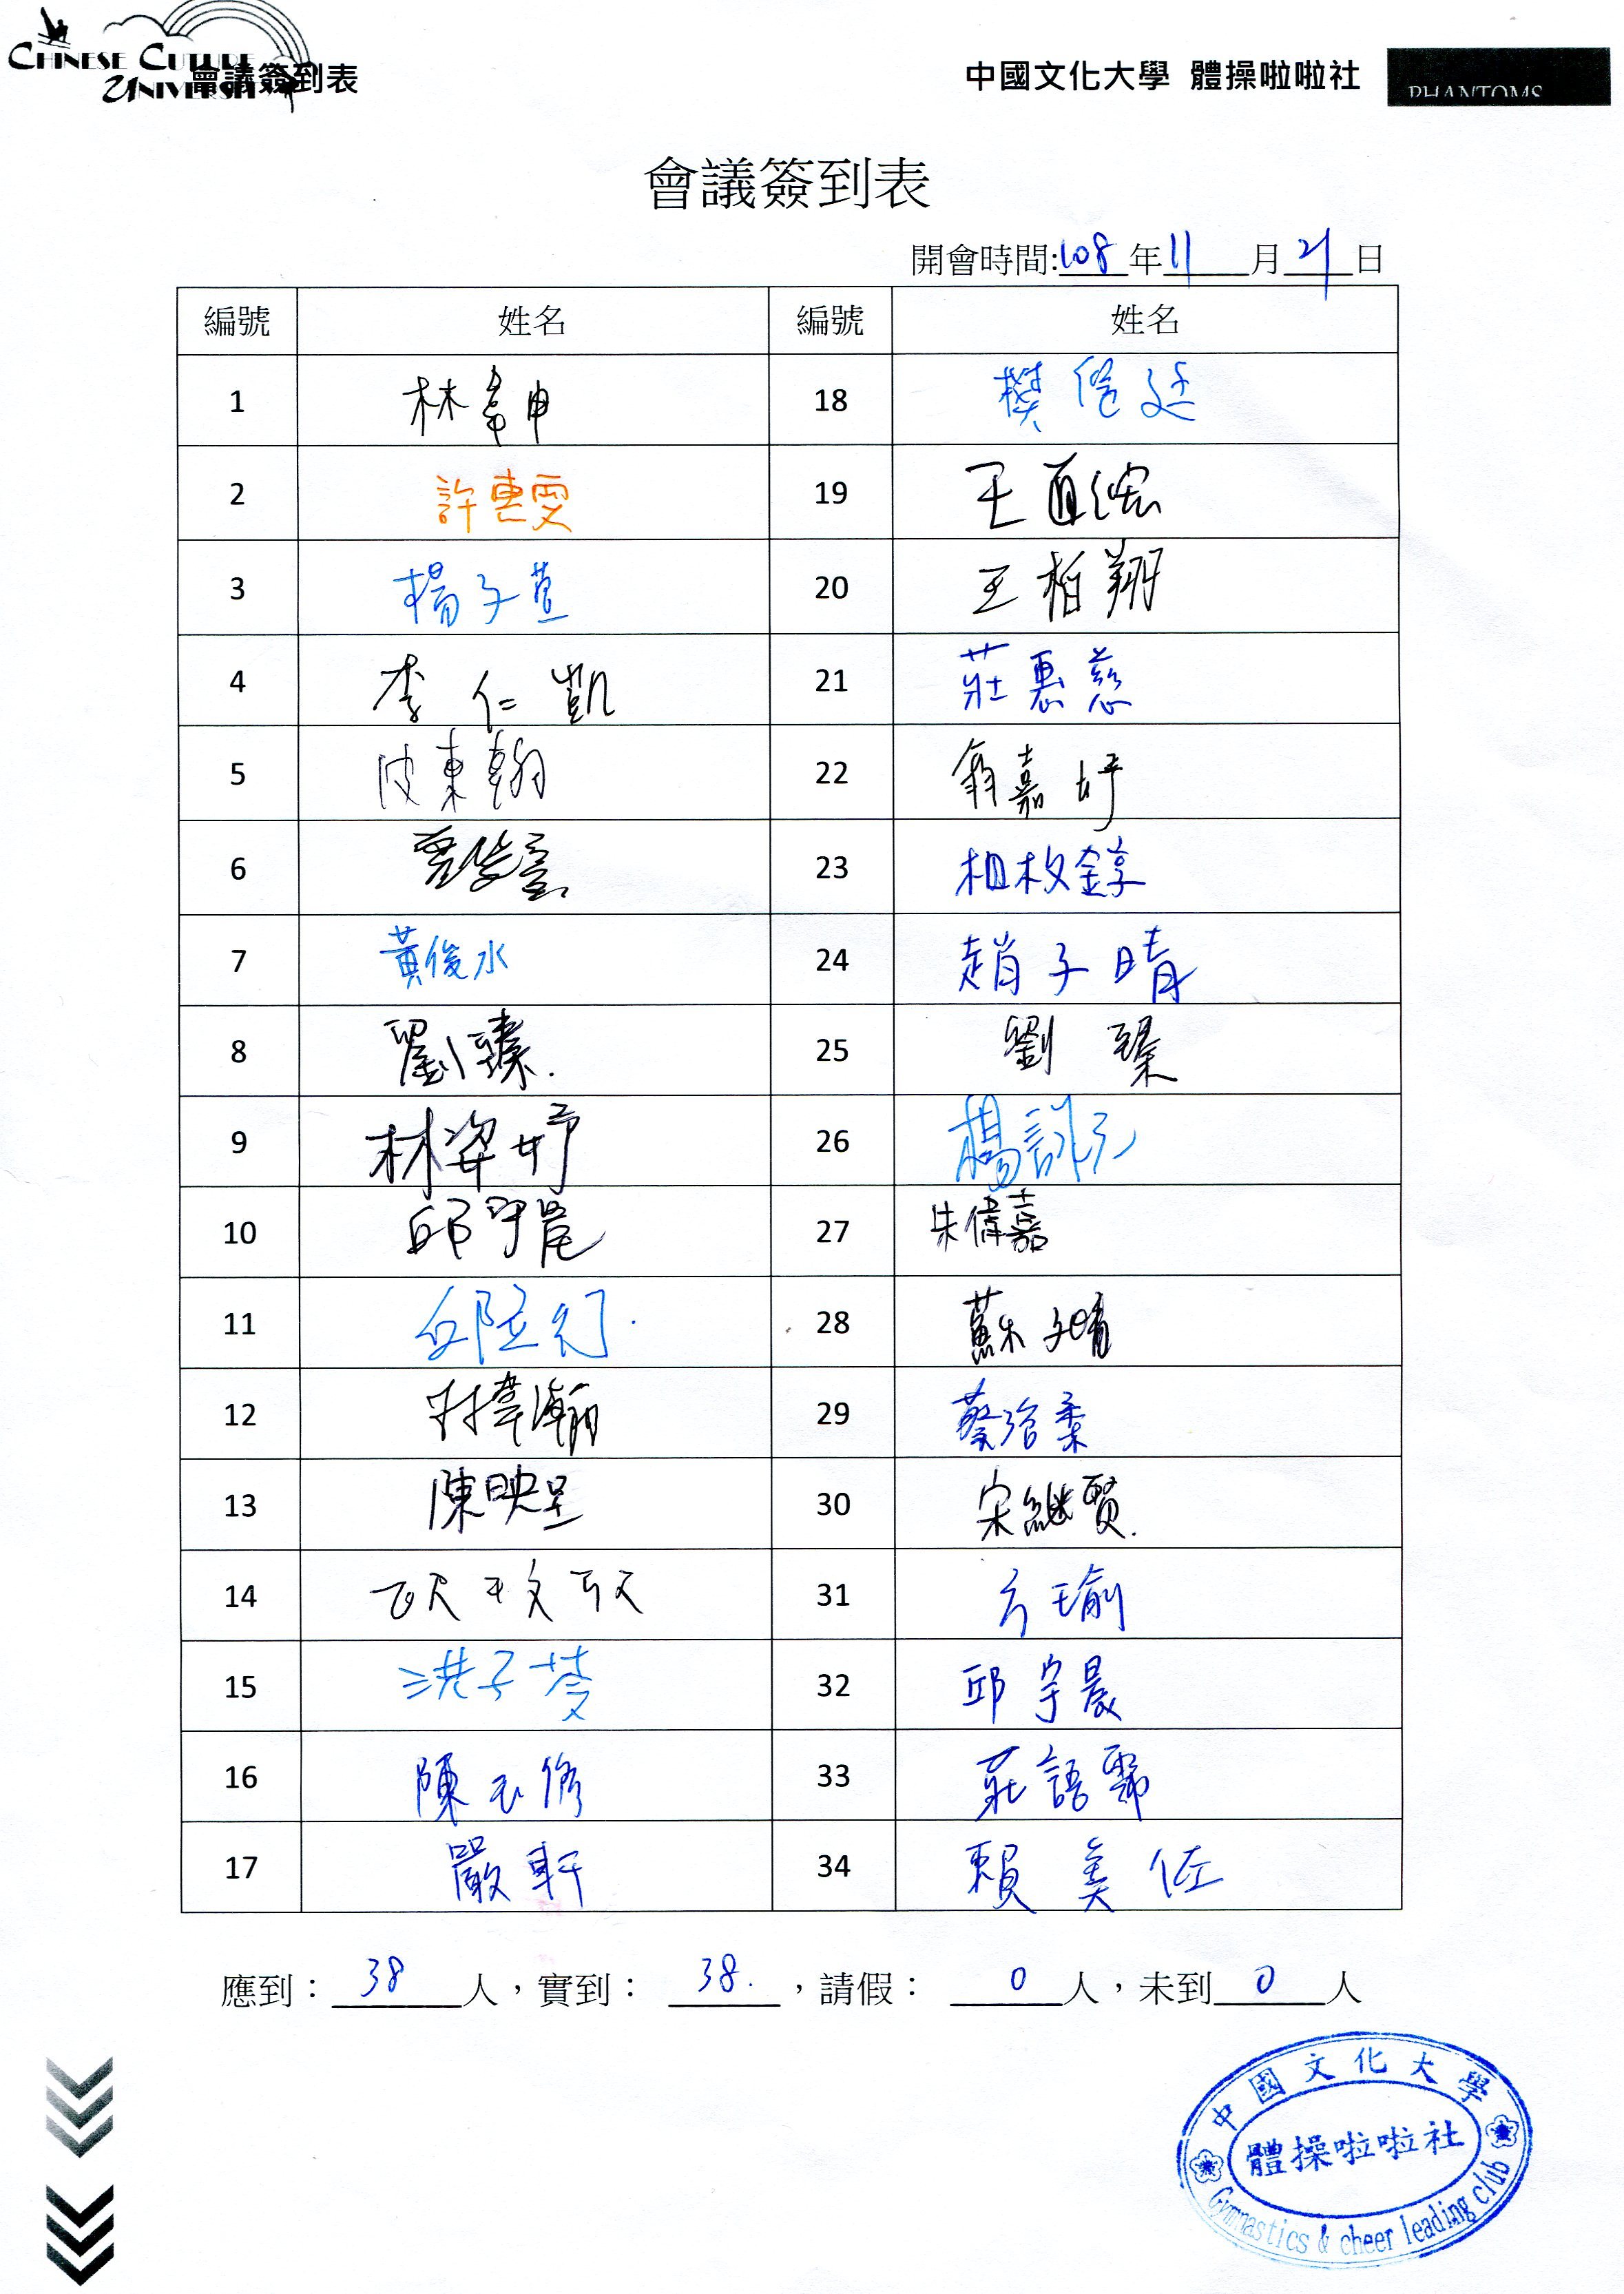 CHINESE CUTURE
UNIVERSI
會議簽到表
中國文化大學 體操啦啦社
PHANTOMS
會議簽到表
開會時間:108年11月21日
編號 姓名 編號 姓名
1 林韋申 18 樊俊廷
2 許惠雯 19 王
3 楊子萱 20 王柏翔
4 李仁凱 21 莊惠慈
5 皮東翰 22 翁嘉妤
6 23 柤枚錞
7 黃俊水 24 趙子晴
8 劉臻. 25 劉臻
9 林姿妤 26 楊訓
10 邱 27 朱偉嘉
11 邱 28 蘇子晴
12 林韋瀚 29 蔡治柔
13 陳映呈 30 宋繼賢.
14 31 方瑜
15 洪子 32 邱宇晨
16 陳 修 33 莊語霈
17 嚴軒 34 賴美佐
應到：38人，實到：38.，請假：0人，未到0人
中國文化大學
體操啦啦社
Gymnastics & cheer leading club